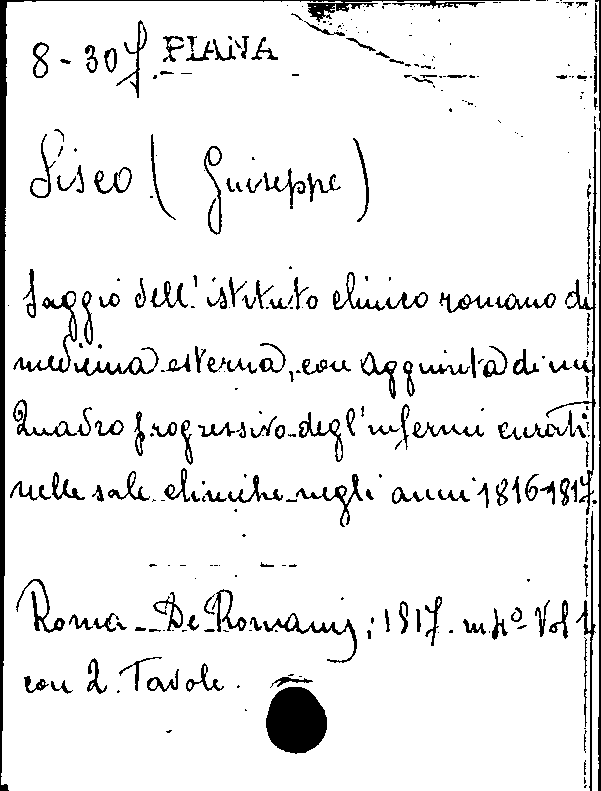 8-30 f PIANA
Sisco (Guiseppe)
Saggio dell'istituto clinico romano di
medicina esterna, con aggiunta di un
Quadro progressivo degl'infermi curati
nelle sale cliniche negli anni 1816-1817.
Roma - De Romanis, 1817. in 4º Vol 1
con 2. Tavole.